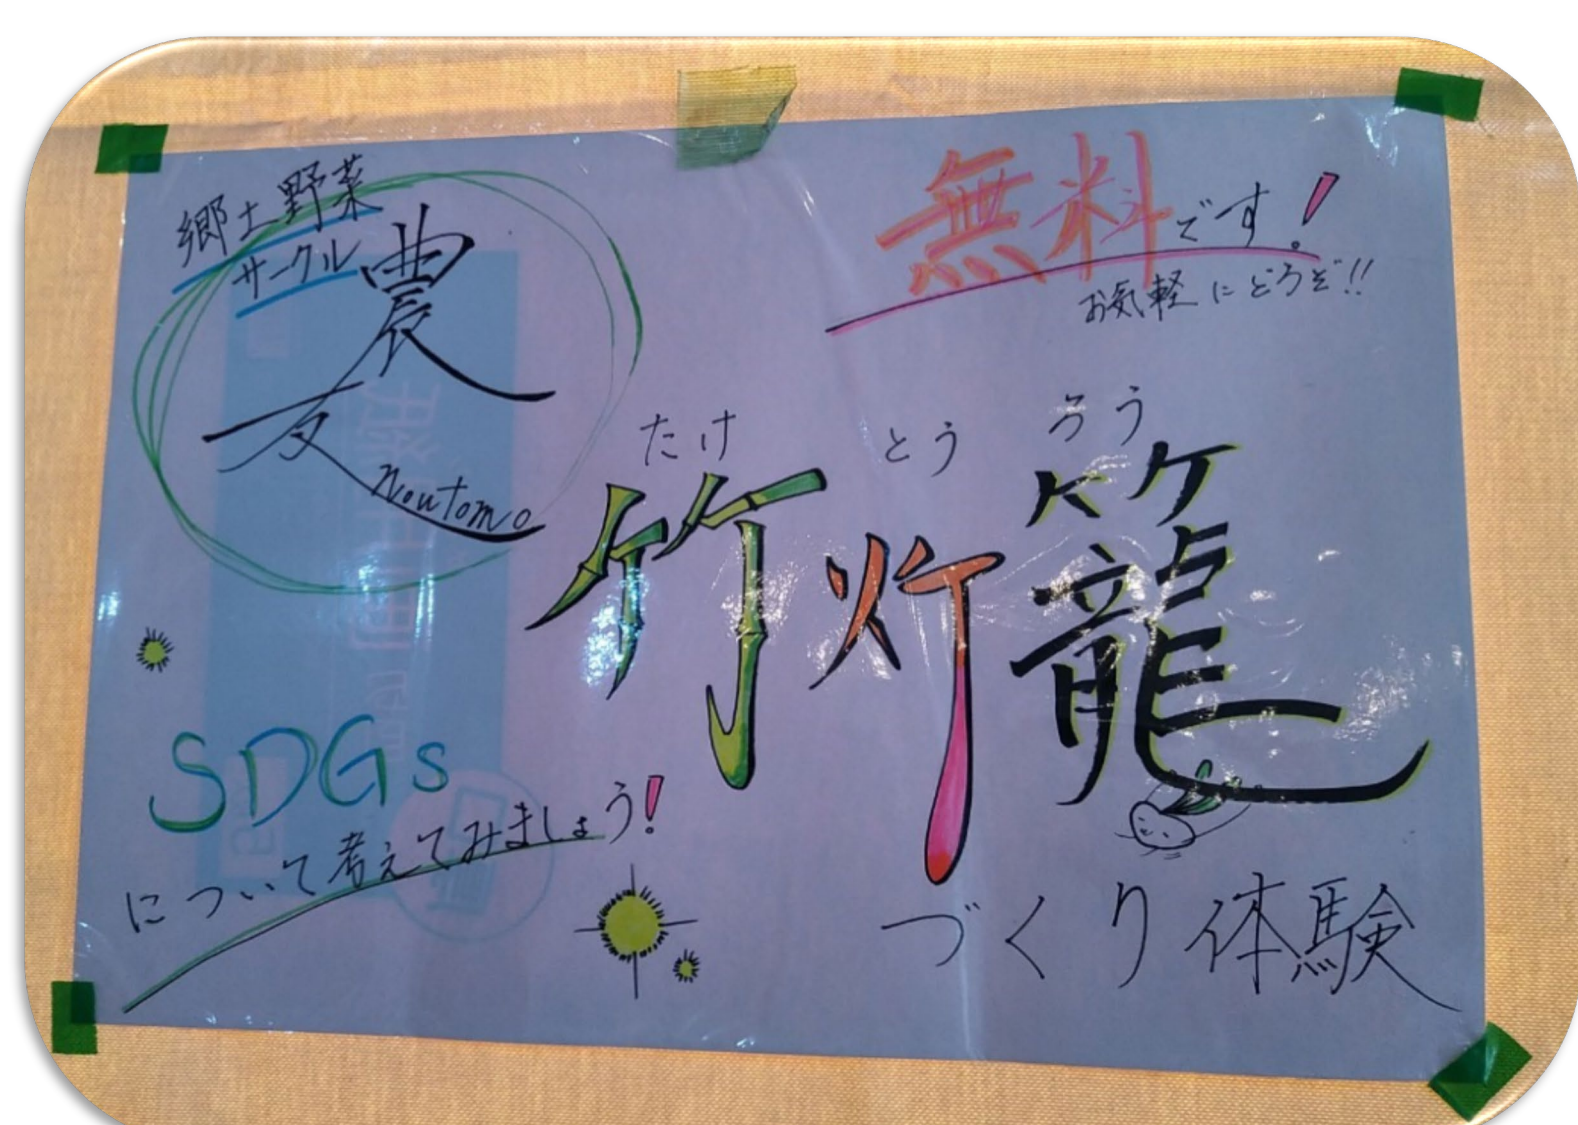 郷土野菜
サークル
農友
Noutomo
無料です!
お気軽にどうぞ!!
たけ とう ろう
竹灯籠
づくり体験
SDGs
について考えてみましょう!